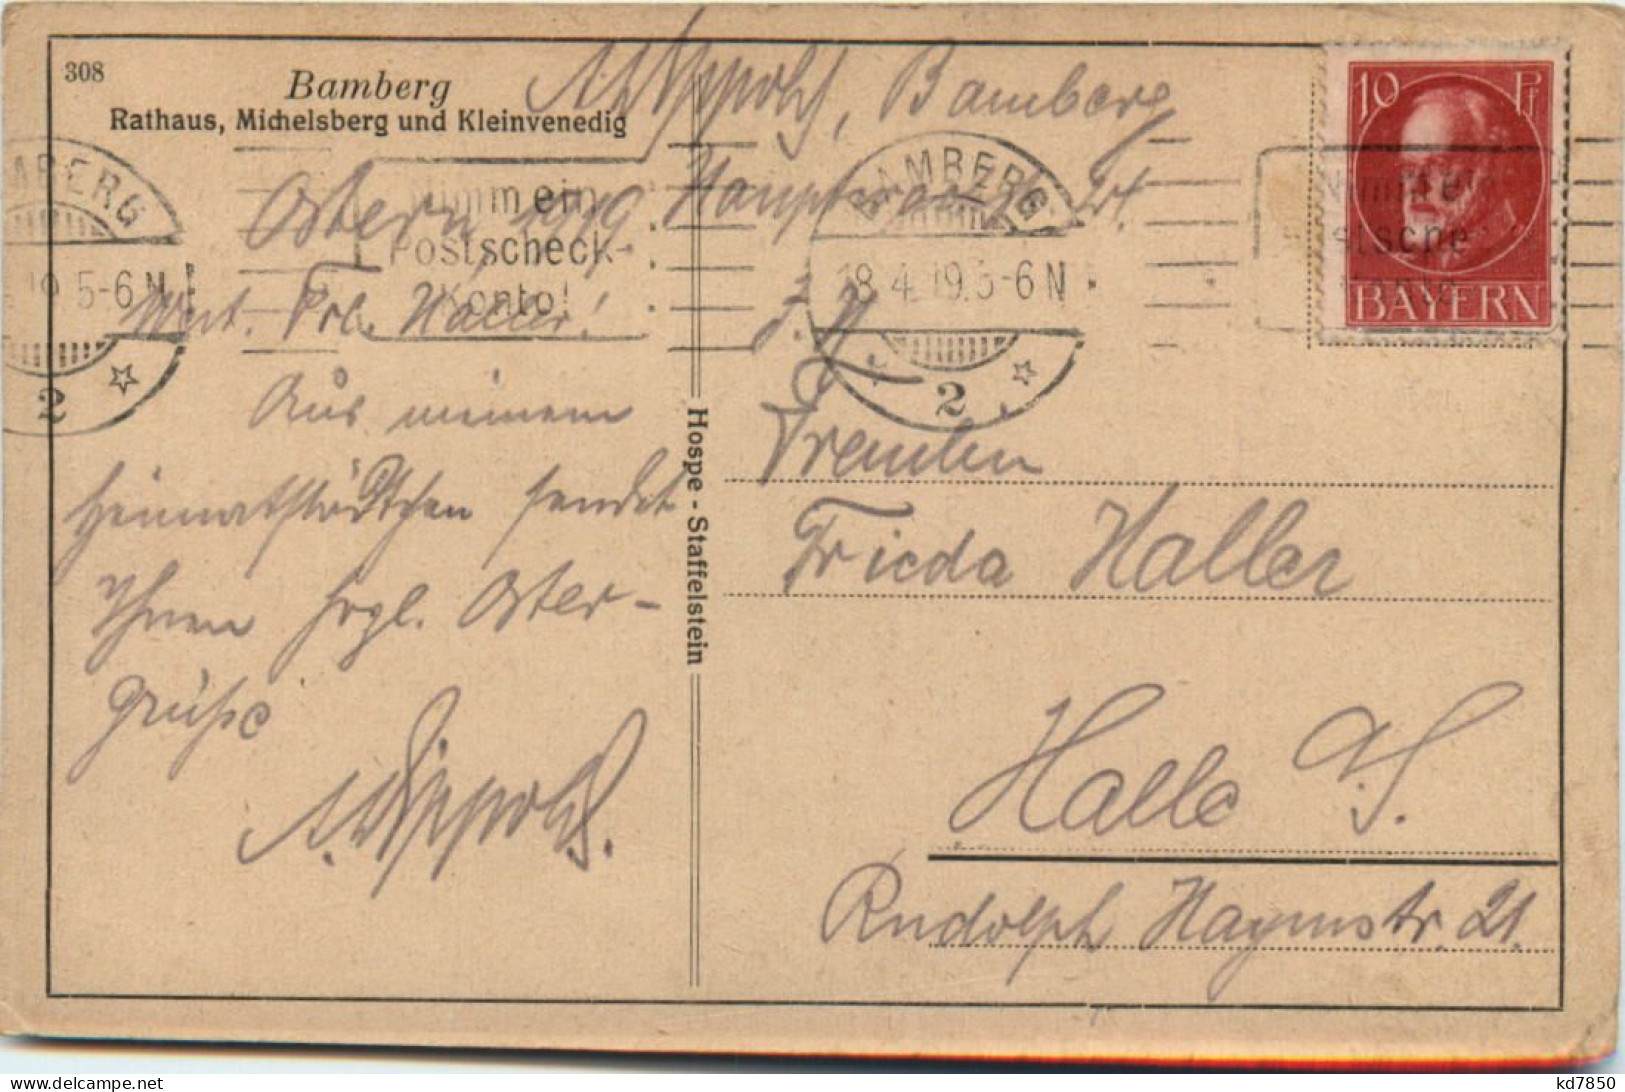 308
Bamberg
Rathaus, Michelsberg und Kleinvenedig
A. Lippold, Bamberg
Hauptwachstr. 21
Ostern 1919
Wert. Frl. Haller!
Aus meinem
Heimatstädtchen sendet
Ihnen hrzl. Oster-
grüße
A. Lippold.
Hospe - Staffelstein
BAMBERG
18.4.19.5-6 N
2
Nimm ein
Postscheck-
Konto!
BAMBERG
19.5-6 N
2
10 Pf
BAYERN
Fräulein
Frieda Haller
Halle a/S.
Rudolph Haymstr. 21.
kd7850